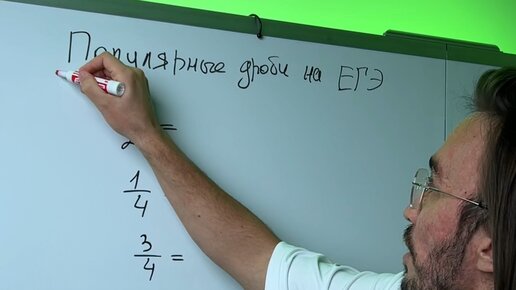 Популярные дроби на ЕГЭ
2 =
1/4
3/4 =